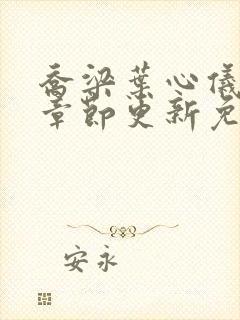 乔梁葉心儀
章節更新免
安永